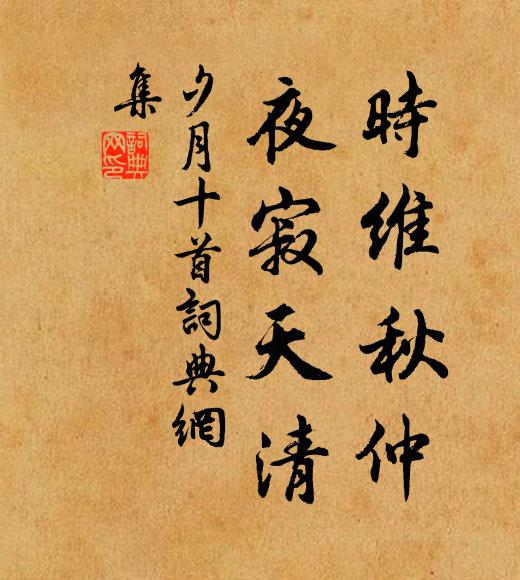 時維秋仲
夜寂天清
夕月十首詞典網
集
詞典
网印